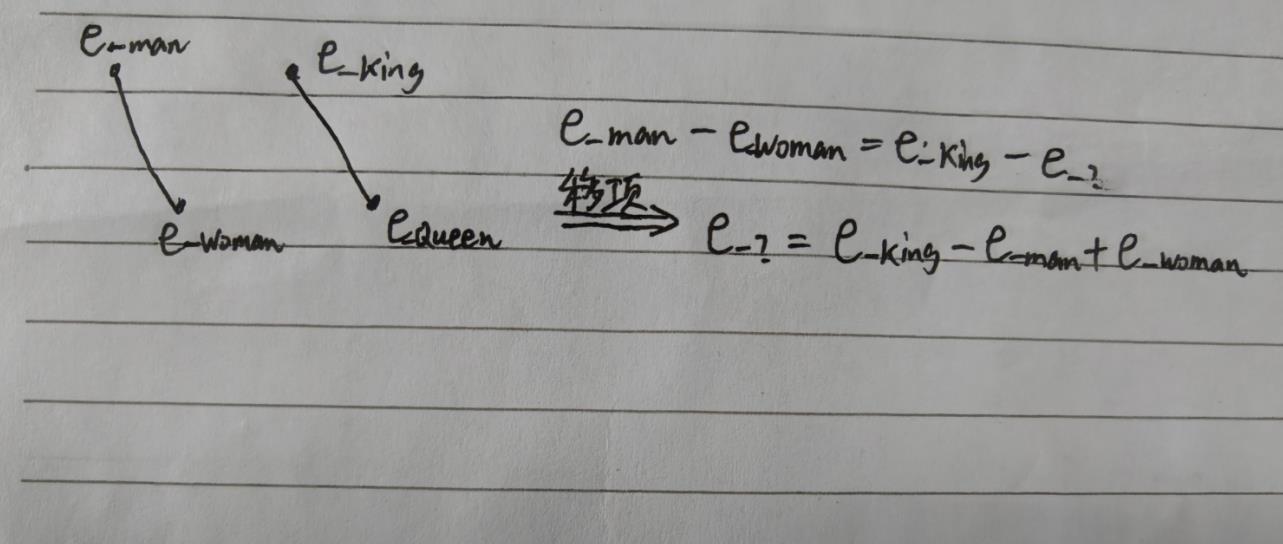 e_man
e_king
e_woman
e_Queen
e_man - e_woman = e_king - e_?
移项
e_? = e_king - e_man + e_woman